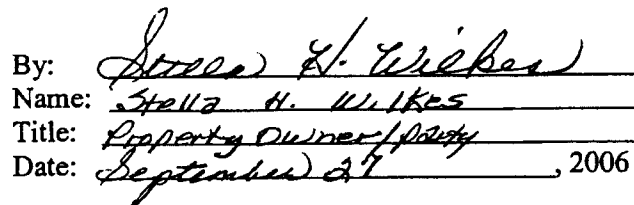 By: Stella H. Wilkes
Name: Stella H. Wilkes
Title: Property Owner/party
Date: September 27, 2006